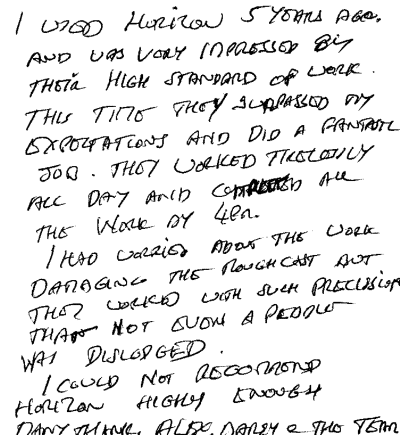 I USED HORIZON 5 YEARS AGO,
AND WAS VERY IMPRESSED BY
THEIR HIGH STANDARD OF WORK.
THIS TIME THEY SURPASSED MY
EXPECTATIONS AND DID A FANTASTIC
JOB. THEY WORKED TIRELESSLY
ALL DAY AND COMPLETED ALL
THE WORK BY 4PM.
I HAD WORRIED ABOUT THE WORK
DAMAGING THE ROUGHCAST BUT
THEY WORKED WITH SUCH PRECISION
THAT NOT EVEN A PEBBLE
WAS DISLODGED.
I COULD NOT RECOMMEND
HORIZON HIGHLY ENOUGH
MANY THANKS, ALEX, DARCY & THE TEAM